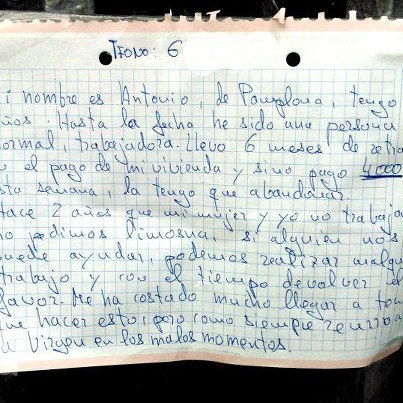 TFONO: 6
i nombre es Antonio, de Pamplona, tengo
ños. Hasta la fecha he sido una persona
ormal, trabajadora. Llevo 6 meses de retra
el pago de mi vivienda y sino pago 4000
sta semana, la tengo que abandonar.
ace 2 años que mi mujer y yo no trabaja
no pedimos limosna, si alguien nos
uede ayudar, podemos realizar
trabajo y con el tiempo devolver el
favor. Me ha costado mucho llegar a ten
que hacer esto, pero como siempre recurro a
Virgen en los malos momentos.